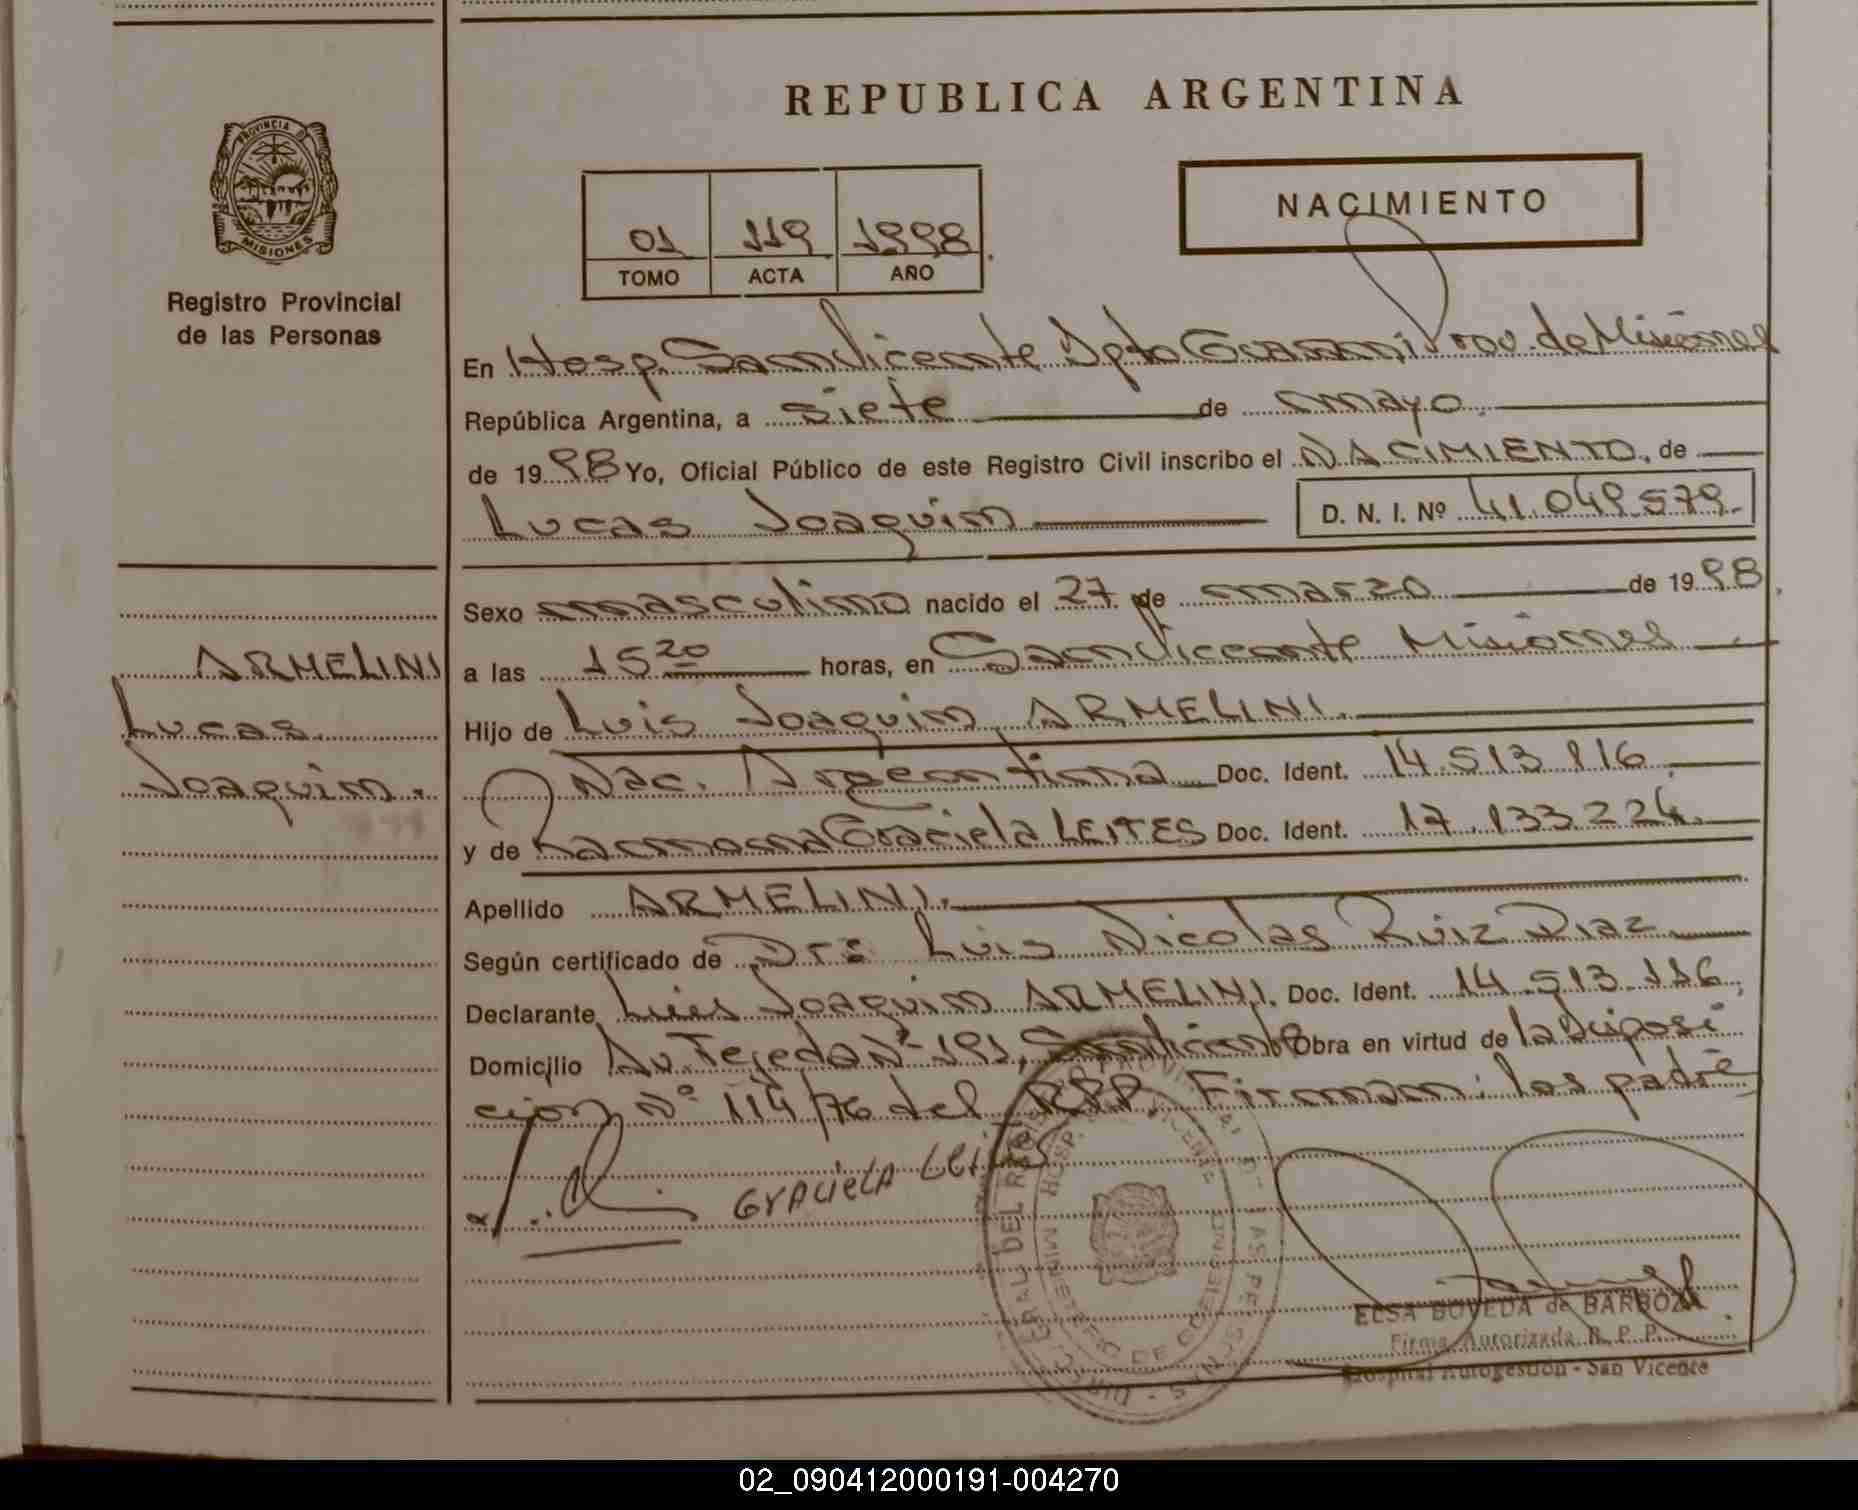 PROVINCIA DE
MISIONES
Registro Provincial
de las Personas
REPUBLICA ARGENTINA
NACIMIENTO
01 119 1998
TOMO ACTA AÑO
En Hosp. San Vicente Dpto Guaraní Prov. de Misiones
República Argentina, a siete de mayo
de 1998 Yo, Oficial Público de este Registro Civil inscribo el NACIMIENTO, de
Lucas Joaquim D. N. I. Nº 41.049.579
Sexo masculino nacido el 27 de marzo de 1998
ARMELINI
Lucas
Joaquim.
a las 15 20 horas, en San Vicente Misiones
Hijo de Luis Joaquim ARMELINI.
Nac. Argentina Doc. Ident. 14.513.116
y de Ramona Graciela LEITES Doc. Ident. 17.133.224.
Apellido ARMELINI.
Según certificado de Dr: Luis Nicolas Ruiz Diaz
Declarante Luis Joaquim ARMELINI. Doc. Ident. 14.513.116
Domicilio Av. Tejeda Nº 191, San Vicente Obra en virtud de la Disposi
cion Nº 114/76 del RPP. Firman: los padre
Graciela Leites
ELSA BOVEDA de BARBOZA
Firma Autorizada R. P. P.
Hospital Autogestion - San Vicente
02_090412000191-004270